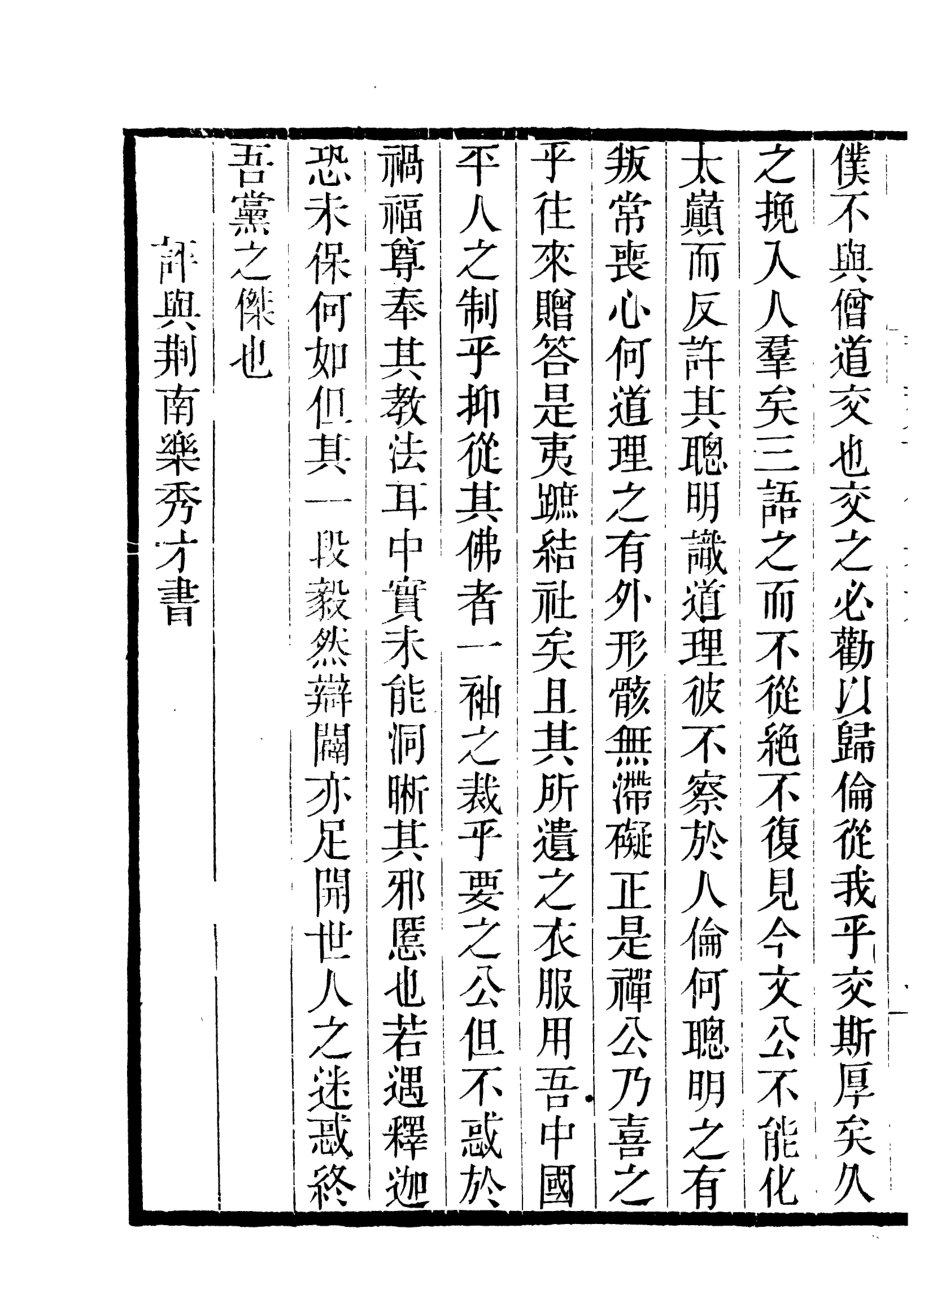 僕不與僧道交也交之必勸以歸倫從我乎交斯厚矣久
之挽入人羣矣三語之而不從絶不復見今文公不能化
太巔而反許其聰明識道理彼不察於人倫何聰明之有
叛常喪心何道理之有外形骸無滯礙正是禪公乃喜之
乎往來贈答是夷蹠結社矣且其所遺之衣服用吾中國
平人之制乎抑從其佛者一袖之裁乎要之公但不惑於
禍福尊奉其教法耳中實未能洞晰其邪慝也若遇釋迦
恐未保何如但其一段毅然辯闢亦足開世人之迷惑終
吾黨之傑也
評與荆南樂秀才書